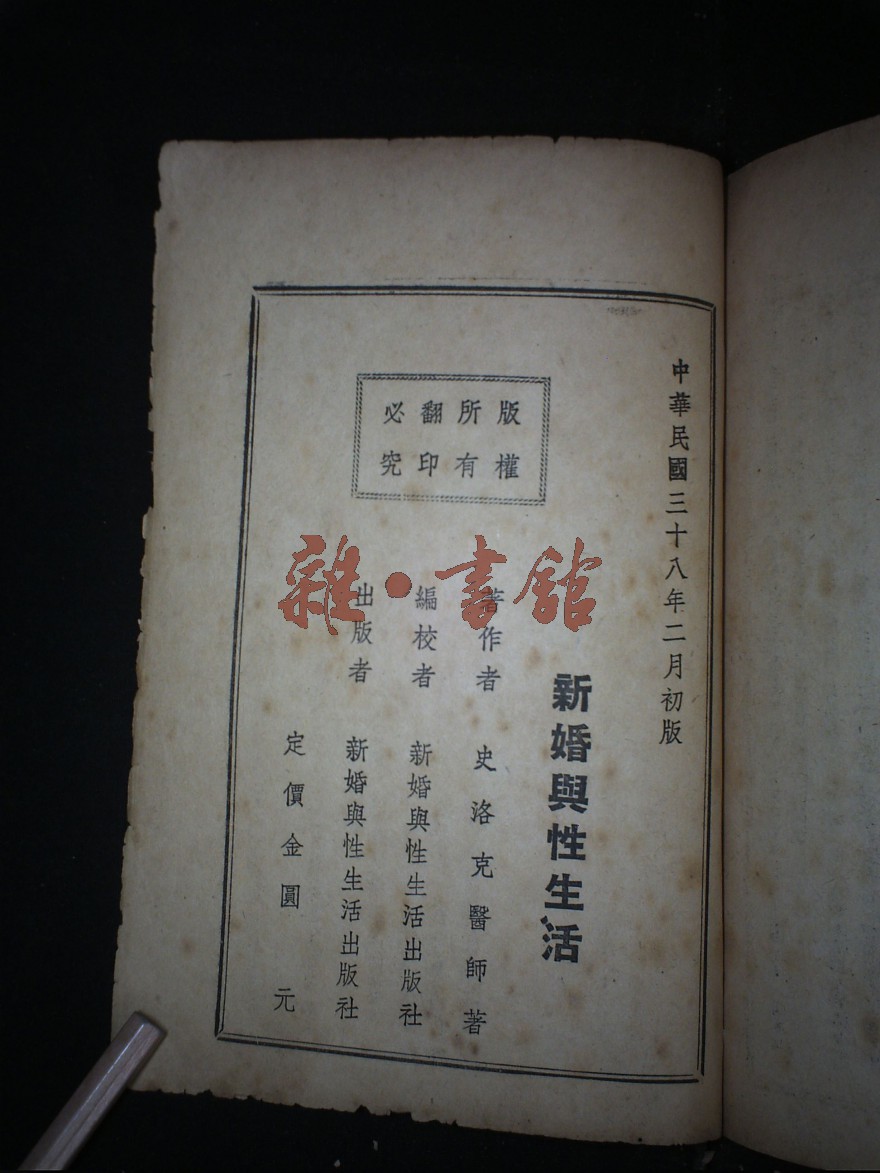 中華民國三十八年二月初版
版權
所有
翻印
必究
新婚與性生活
著作者 史洛克醫師著
編校者 新婚與性生活出版社
出版者 新婚與性生活出版社
定價金圓 元
雜·書館